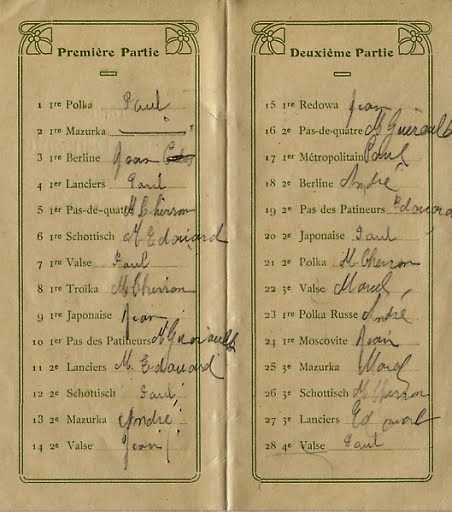 Première Partie
1 1re Polka Paul
2 1re Mazurka
3 1re Berline Jean
4 1er Lanciers Paul
5 1er Pas-de-quatre M. Cherron
6 1re Schottisch M. Edouard
7 1re Valse Paul
8 1re Troïka M. Cherron
9 1re Japonaise Jean
10 1er Pas des Patineurs M. Guérault
11 2e Lanciers M. Edouard
12 2e Schottisch Paul
13 2e Mazurka André
14 2e Valse Jean
Deuxième Partie
15 1re Redowa Jean
16 2e Pas-de-quatre M. Guérault
17 1er Métropolitain Paul
18 2e Berline André
19 2e Pas des Patineurs Edouard
20 2e Japonaise Paul
21 2e Polka M. Cherron
22 3e Valse Marcel
23 1re Polka Russe André
24 1re Moscovite Jean
25 3e Mazurka Marcel
26 3e Schottisch M. Cherron
27 3e Lanciers Edouard
28 4e Valse Paul